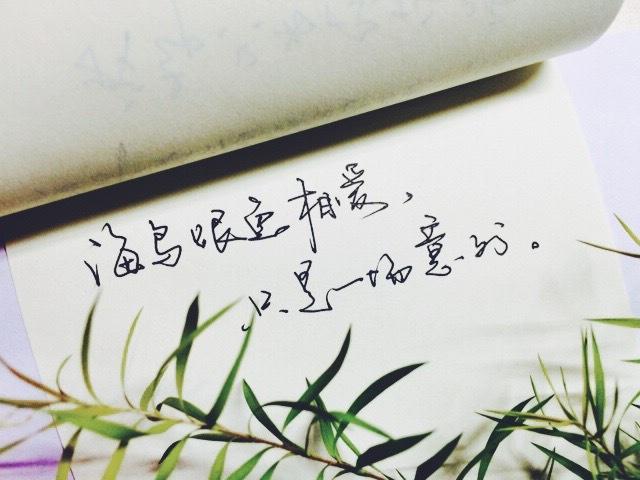 海鸟跟鱼相爱，
只是一场意外。